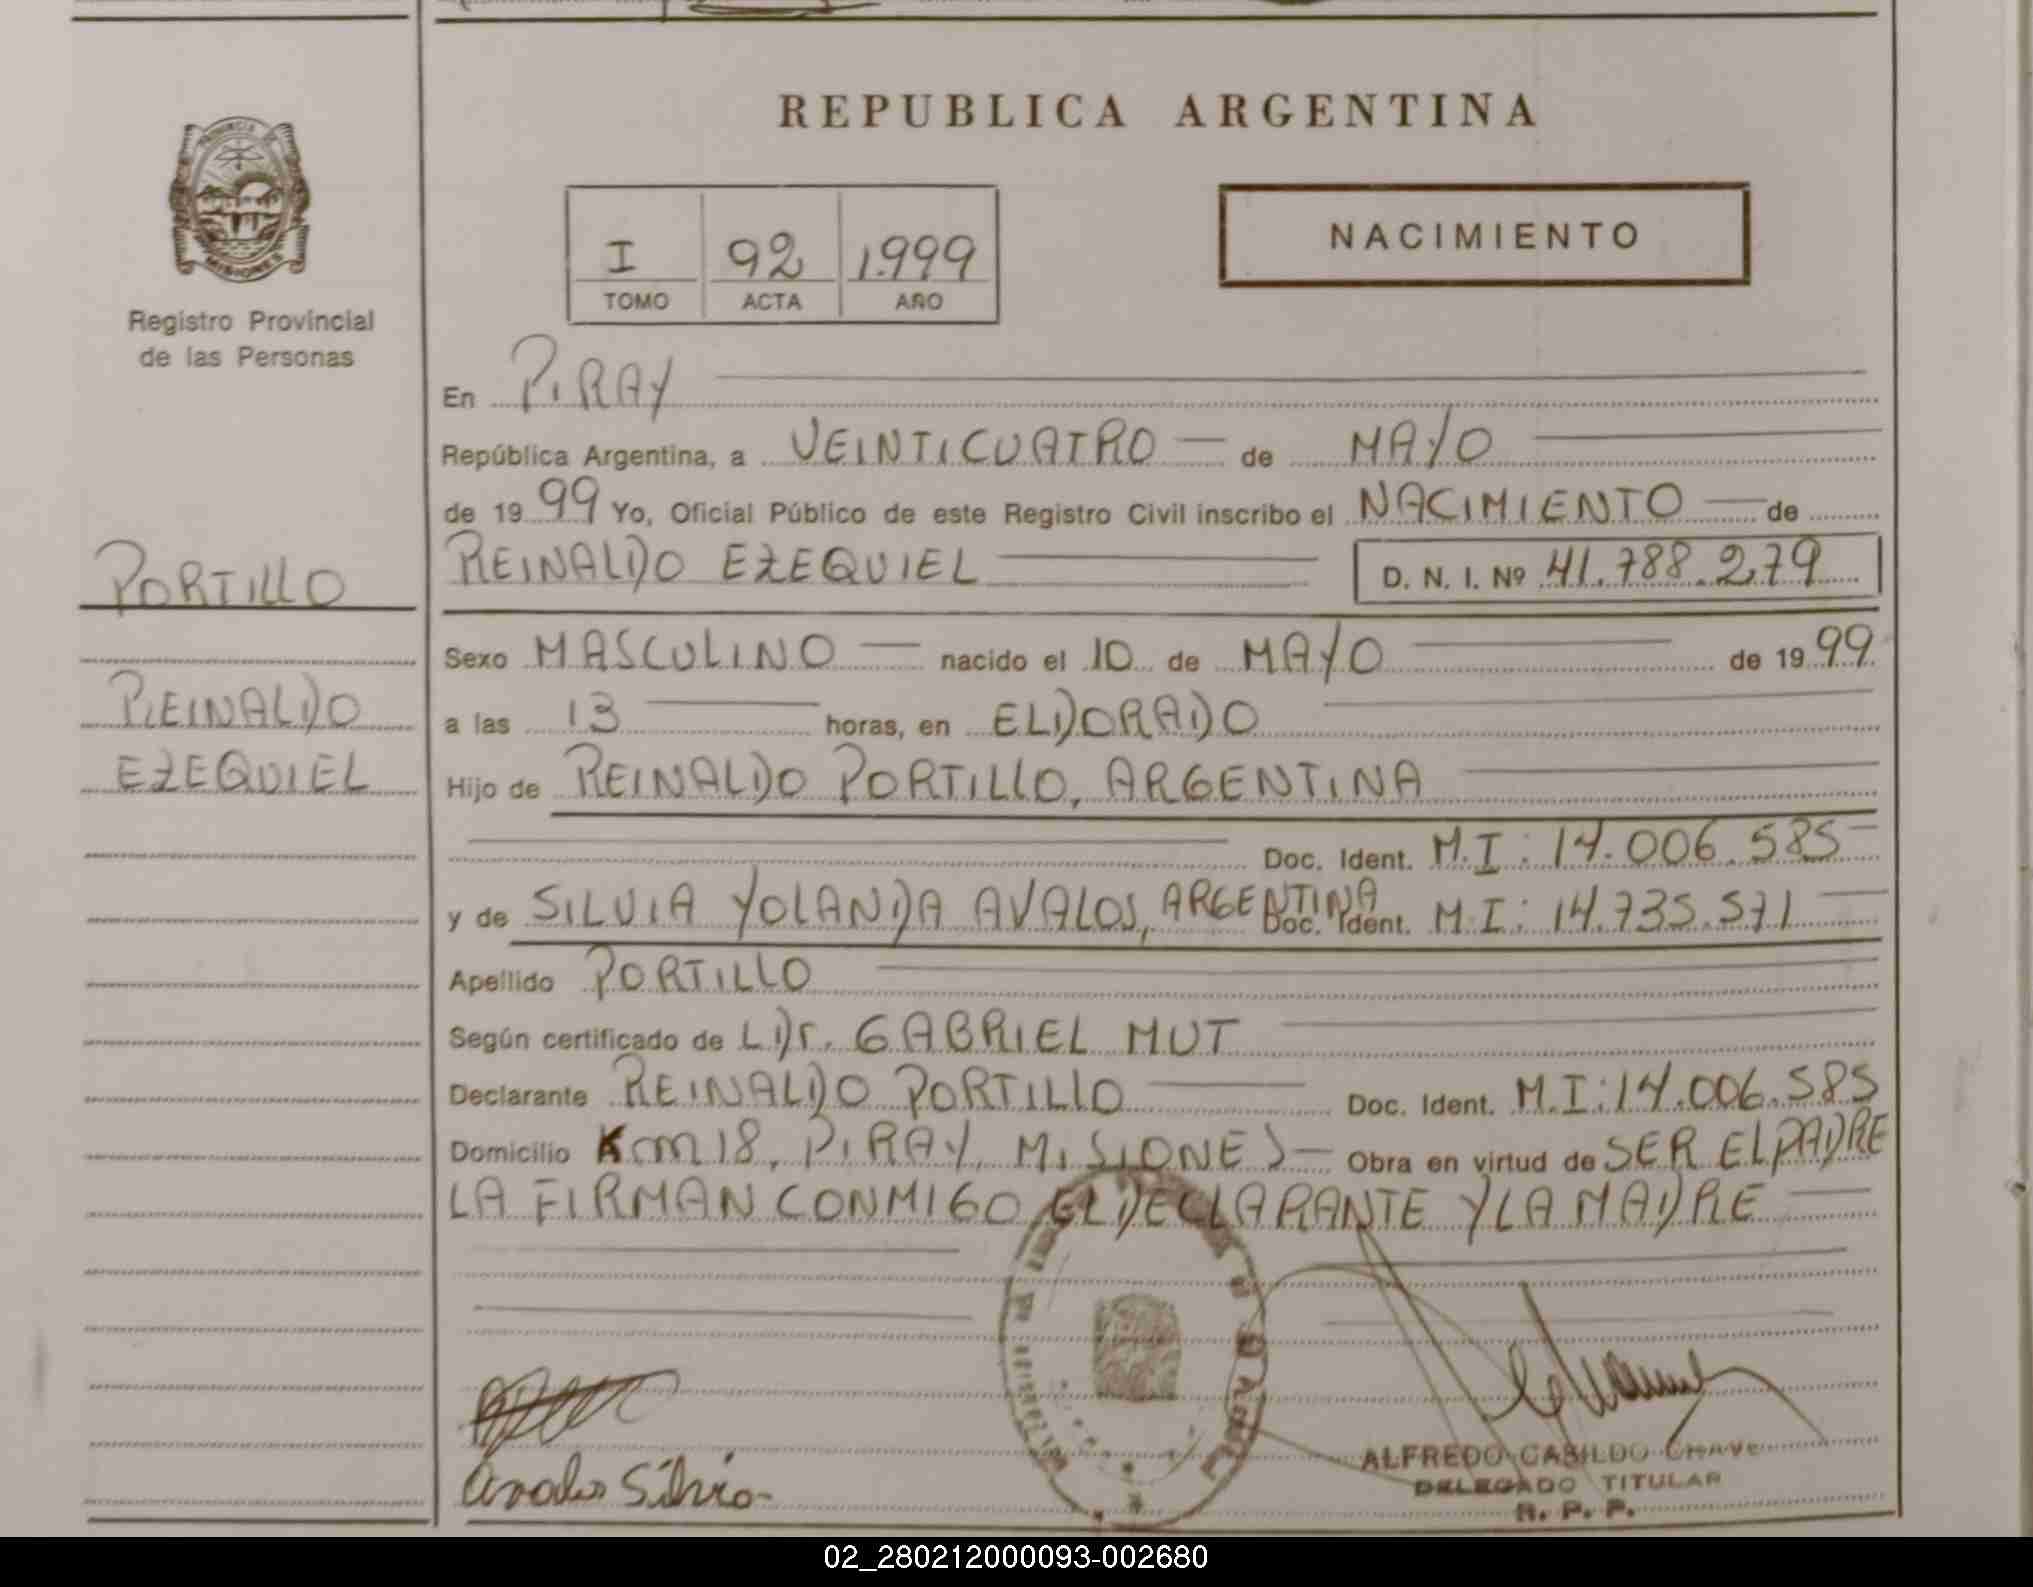 REPUBLICA ARGENTINA
PROVINCIA DE
MISIONES
Registro Provincial
de las Personas
I 92 1.999
TOMO ACTA AÑO
NACIMIENTO
En PIRAY
República Argentina, a VEINTICUATRO de MAYO
de 1999 Yo, Oficial Público de este Registro Civil inscribo el NACIMIENTO de
REINALDO EZEQUIEL D. N. I. Nº 41.788.279
PORTILLO
REINALDO
EZEQUIEL
Sexo MASCULINO nacido el 10 de MAYO de 1999
a las 13 horas, en ELDORADO
Hijo de REINALDO PORTILLO, ARGENTINA
Doc. Ident. M.I: 14.006.585
y de SILVIA YOLANDA AVALOS, ARGENTINA Doc. Ident. M.I: 14.735.571
Apellido PORTILLO
Según certificado de LDr. GABRIEL MUT
Declarante REINALDO PORTILLO Doc. Ident. M.I:14.006.585
Domicilio Km 18, PIRAY, MISIONES Obra en virtud de SER EL PADRE
LA FIRMAN CONMIGO EL DECLARANTE Y LA MADRE
Avalos Silvia
ALFREDO CASILDO CHAVE
DELEGADO TITULAR
R. P. P.
02_280212000093-002680